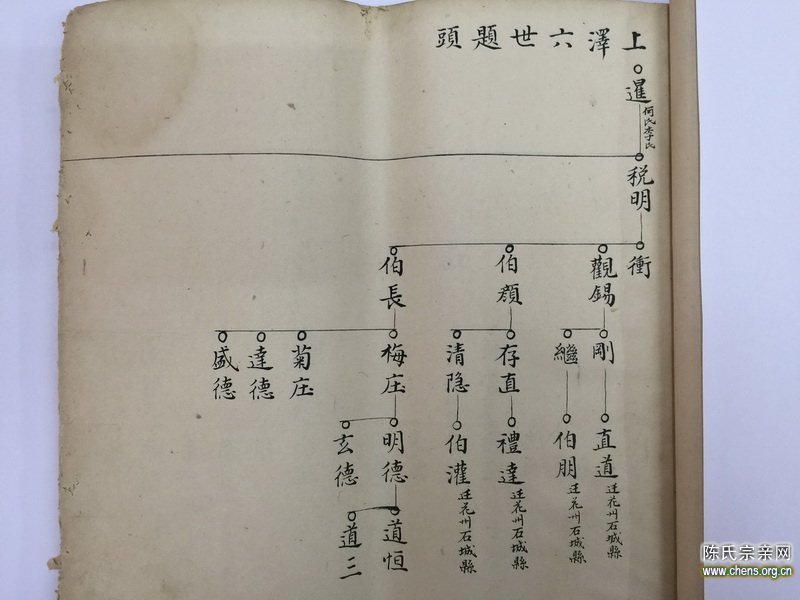 上澤六世題頭
暹
何氏李氏
稅明
衝
觀錫
伯顏
伯長
剛
繼
存直
清隐
梅庄
菊庄
達德
盛德
直道
迁花州石城縣
伯朋
迁花州石城縣
禮達
迁花州石城縣
伯灌
迁花州石城縣
明德
玄德
道恒
道三
陈氏宗亲网
www.chens.org.cn